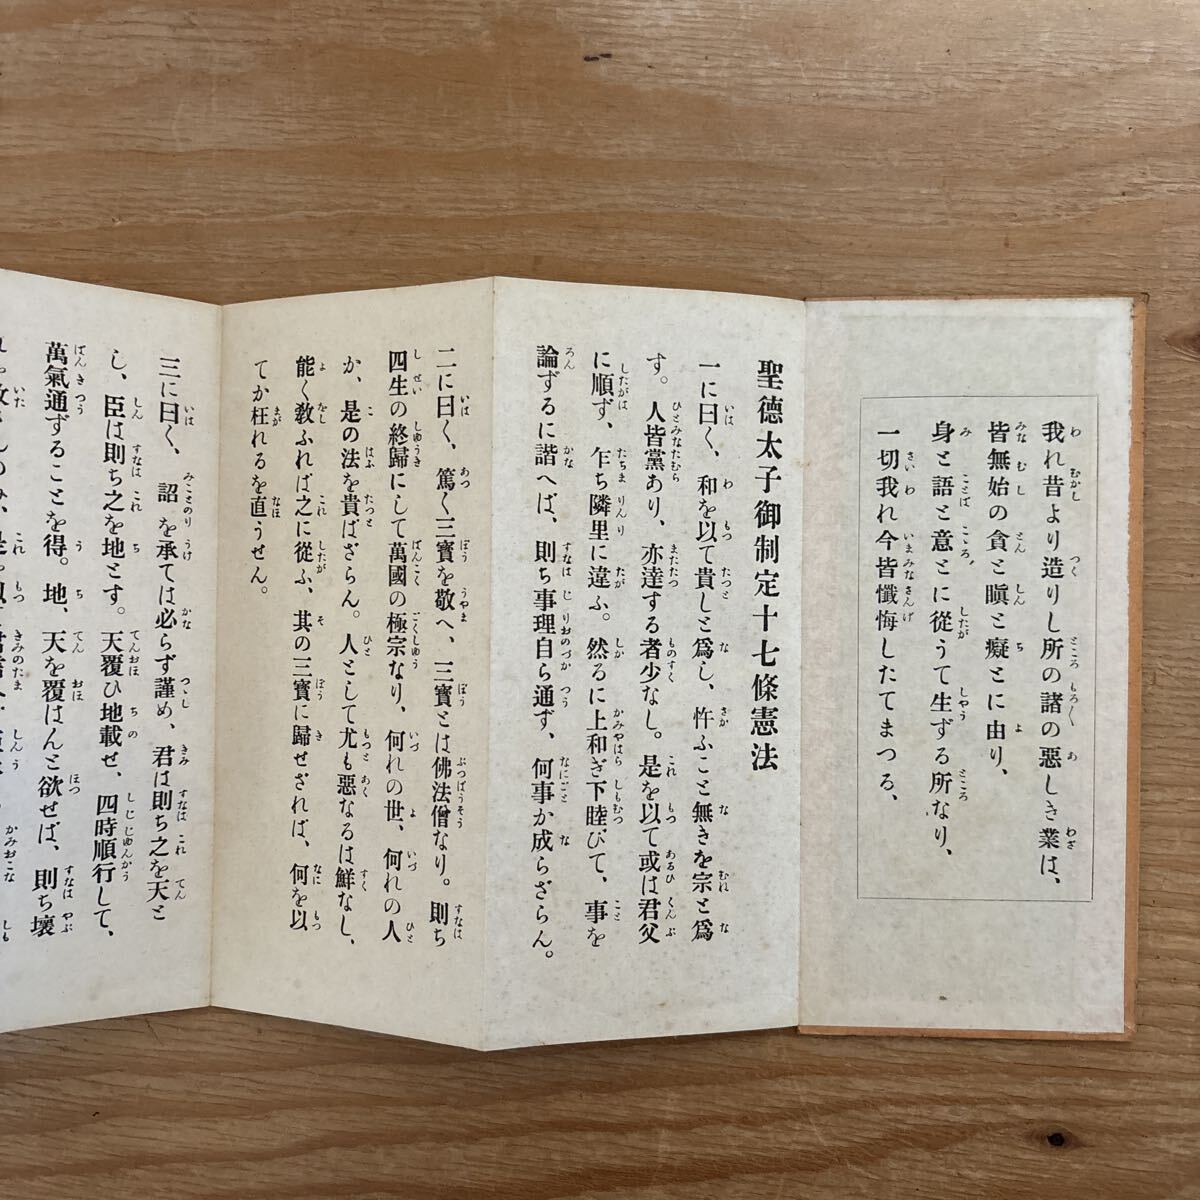 我れ昔より造りし所の諸の惡しき業は、
皆無始の貪と瞋と癡とに由り、
身と語と意とに從うて生ずる所なり、
一切我れ今皆懺悔したてまつる、
聖德太子御制定十七條憲法
一に曰く、和を以て貴しと爲し、忤ふこと無きを宗と爲
す。人皆黨あり、亦達する者少なし。是を以て或は君父
に順ず、乍ち隣里に違ふ。然るに上和ぎ下睦びて、事を
論ずるに諧へば、則ち事理自ら通ず、何事か成らざらん。
二に曰く、篤く三寶を敬へ、三寶とは佛法僧なり。則ち
四生の終歸にして萬國の極宗なり、何れの世、何れの人
か、是の法を貴ばざらん。人として尤も惡なるは鮮なし、
能く敎ふれば之に從ふ、其の三寶に歸せざれば、何を以
てか枉れるを直うせん。
三に曰く、詔を承ては必らず謹め、君は則ち之を天と
し、臣は則ち之を地とす。天覆ひ地載せ、四時順行して、
萬氣通ずることを得。地、天を覆はんと欲せば、則ち壞